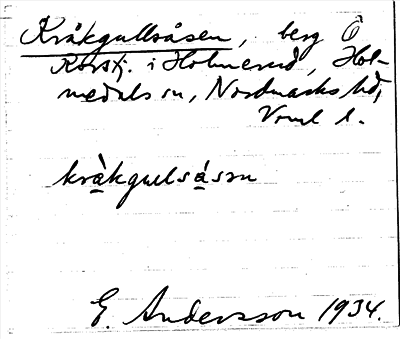 Kråkgullsåsen, berg Ö
Korstj. i Holmerud, Hol-
medals sn, Nordmarks hd,
Vrml l.
kràkgulsásən
E. Andersson 1934.